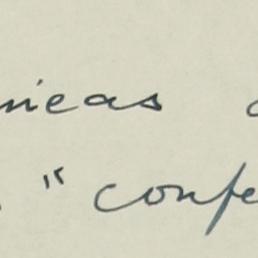 nieas
" confe